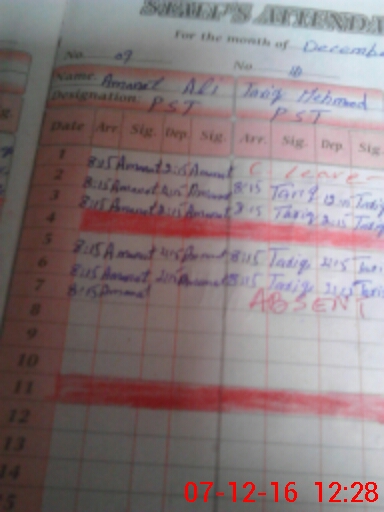 STAFF'S ATTENDA
For the month of December
No. 09 No. 10
Name. Amanat Ali Tariq Mehmood
Designation. PST PST
Date Arr. Sig. Dep. Sig. Arr. Sig. Dep.
1 8:15 Amanat 2:15 Amanat C. Leave
2 8:15 Amanat Amanat 8:15 Tariq 12:15 Tariq
3 8:15 Amanat 2:15 Amanat 8:15 Tariq 2:15 Tariq
4
5 8:15 Amanat 2:15 Amanat 8:15 Tariq 2:15 Tariq
6 8:15 Amanat 2:15 Amanat 8:15 Tariq 2:15 Tariq
7 8:15 Amanat ABSENT
8
9
10
11
12
13
14
07-12-16 12:28